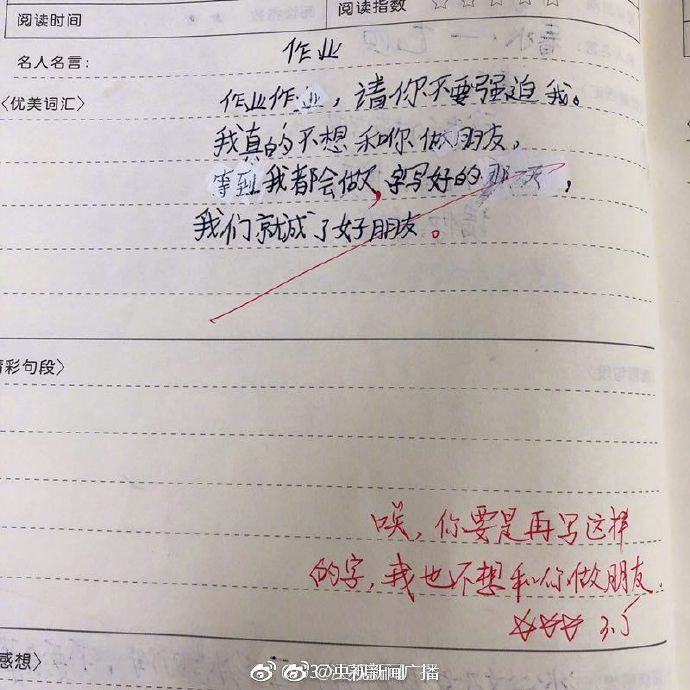 阅读时间 阅读指数 ☆☆☆☆☆
名人名言:
作业
〈优美词汇〉
作业作业，请你不要强迫我。
我真的不想和你做朋友。
等到我都会做，字写好的那一天，
我们就成了好朋友。
彩句段〉
唉，你要是再写这样
的字，我也不想和你做朋友。
☆☆☆ 3.5
感想〉
@央视新闻广播